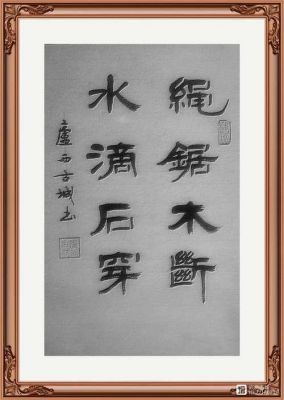 繩鋸木斷
水滴石穿
盧西古城書